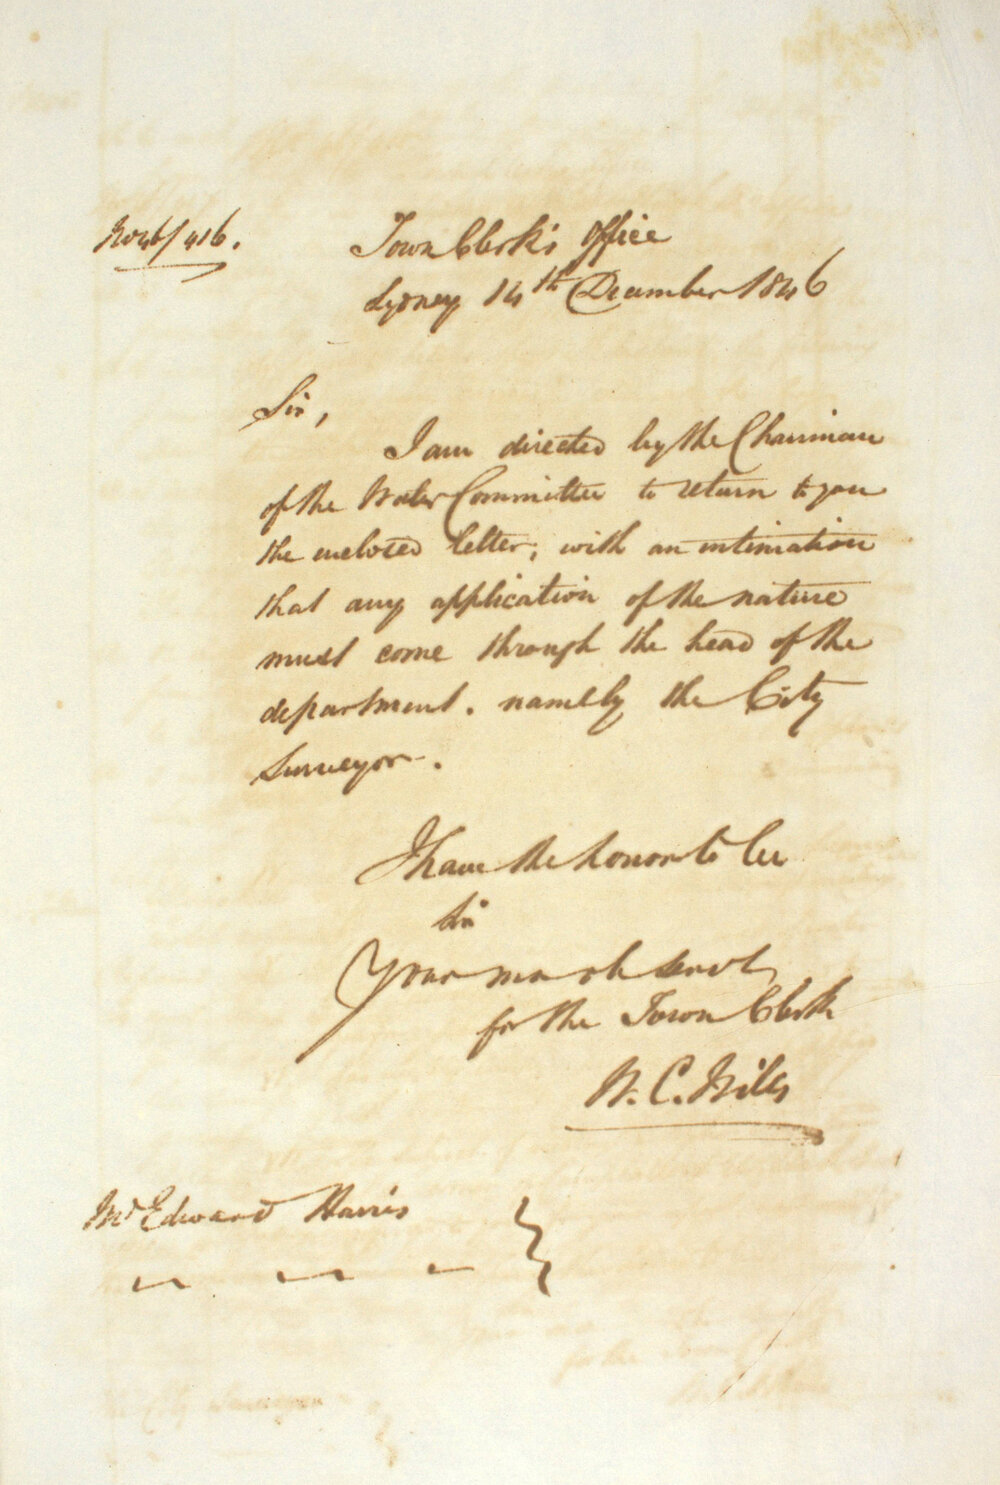 No 46/416.
Town Clerk's Office
Sydney 14th December 1846
Sir,
I am directed by the Chairman
of the Water Committee to return to you
the enclosed letter, with an intimation
that any application of the nature
must come through the head of the
department. namely the City
Surveyor.
I have the honor to be
Sir
Your most ob servt
for the Town Clerk
W. C. Wills
Mr Edward Harris